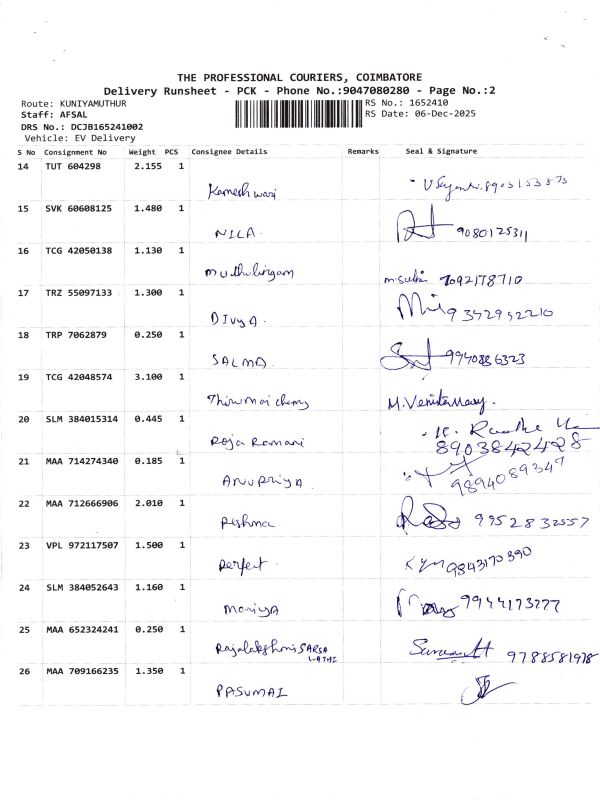 THE PROFESSIONAL COURIERS, COIMBATORE
Delivery Runsheet - PCK - Phone No.:9047080280 - Page No.:2
Route: KUNIYAMUTHUR RS No.: 1652410
Staff: AFSAL RS Date: 06-Dec-2025
DRS No.: DCJB165241002
Vehicle: EV Delivery
S No Consignment No Weight PCS Consignee Details Remarks Seal & Signature
14 TUT 604298 2.155 1
Kameshwari 8903153873
15 SVK 60608125 1.480 1
NILA. 9080125311
16 TCG 42050138 1.130 1
Muthulingam 7092178710
17 TRZ 55097133 1.300 1
DIVYA. 9342942210
18 TRP 7062879 0.250 1
SALMA 9940886323
19 TCG 42048574 3.100 1
M.
20 SLM 384015314 0.445 1
Roja Ramani
8903842428
21 MAA 714274340 0.185 1
ANUPRIYA 9894089347
22 MAA 712666906 2.010 1
Reshma 9952832557
23 VPL 972117507 1.500 1
Perfect 9843170390
24 SLM 384052643 1.160 1
Mariya
25 MAA 652324241 0.250 1
Rajalakshmi 9788581978
26 MAA 709166235 1.350 1
PASUMAI